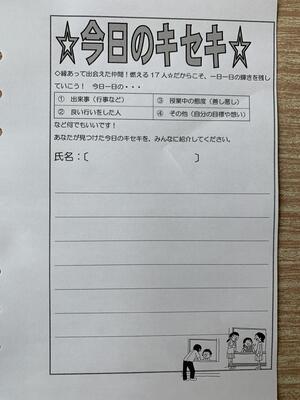 ☆今日のキセキ☆
◇縁あって出会えた仲間！燃える17人☆だからこそ、一日一日の輝きを残し
ていこう！　今日一日の・・・
① 出来事（行事など）　③ 授業中の態度（善し悪し）
② 良い行いをした人　④ その他（自分の目標や想い）
など何でもいいです！
あなたが見つけた今日のキセキを、みんなに紹介してください。
氏名：〔　　　　　　　　〕